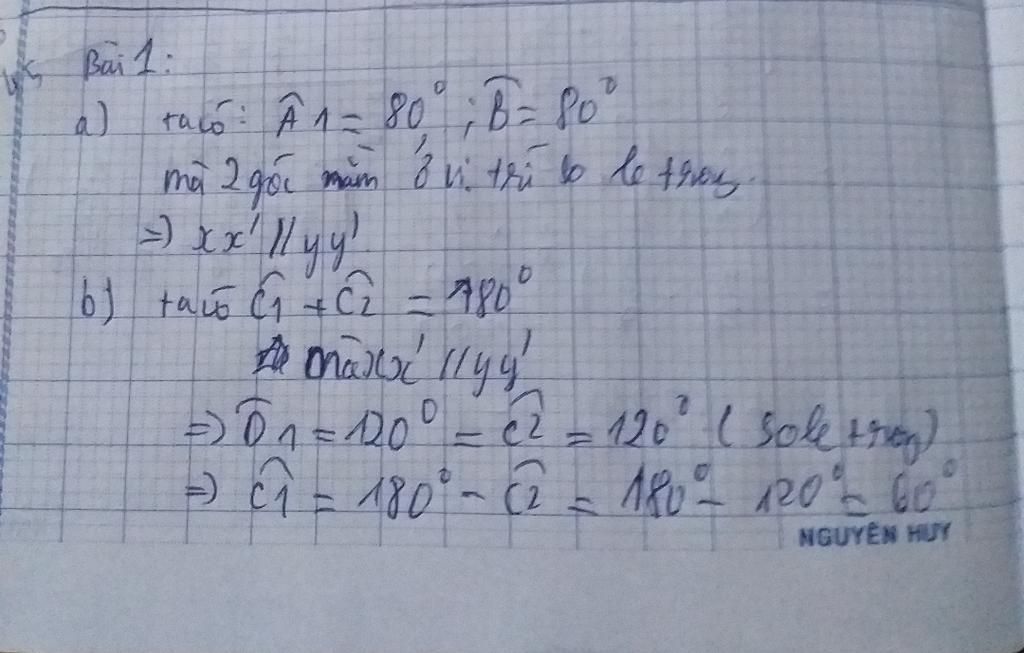 Bài 1:
a) ta có: Â1 = 80° ; B̂ = 80°
mà 2 góc nằm ở vị trí so le trong
=> xx' // yy'
b) ta có Ĉ1 + Ĉ2 = 180°
mà xx' // yy'
=> D̂1 = 120° = Ĉ2 = 120° ( sole trong)
=> Ĉ1 = 180° - Ĉ2 = 180° - 120° = 60°
NGUYÊN HUY